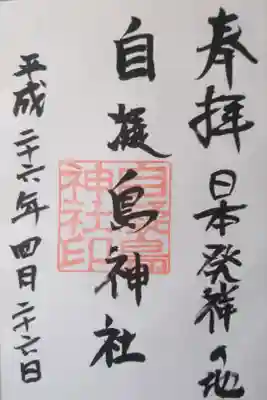 奉拝 日本発祥の地
自凝島神社
自凝島神社印
平成二十六年四月二十六日